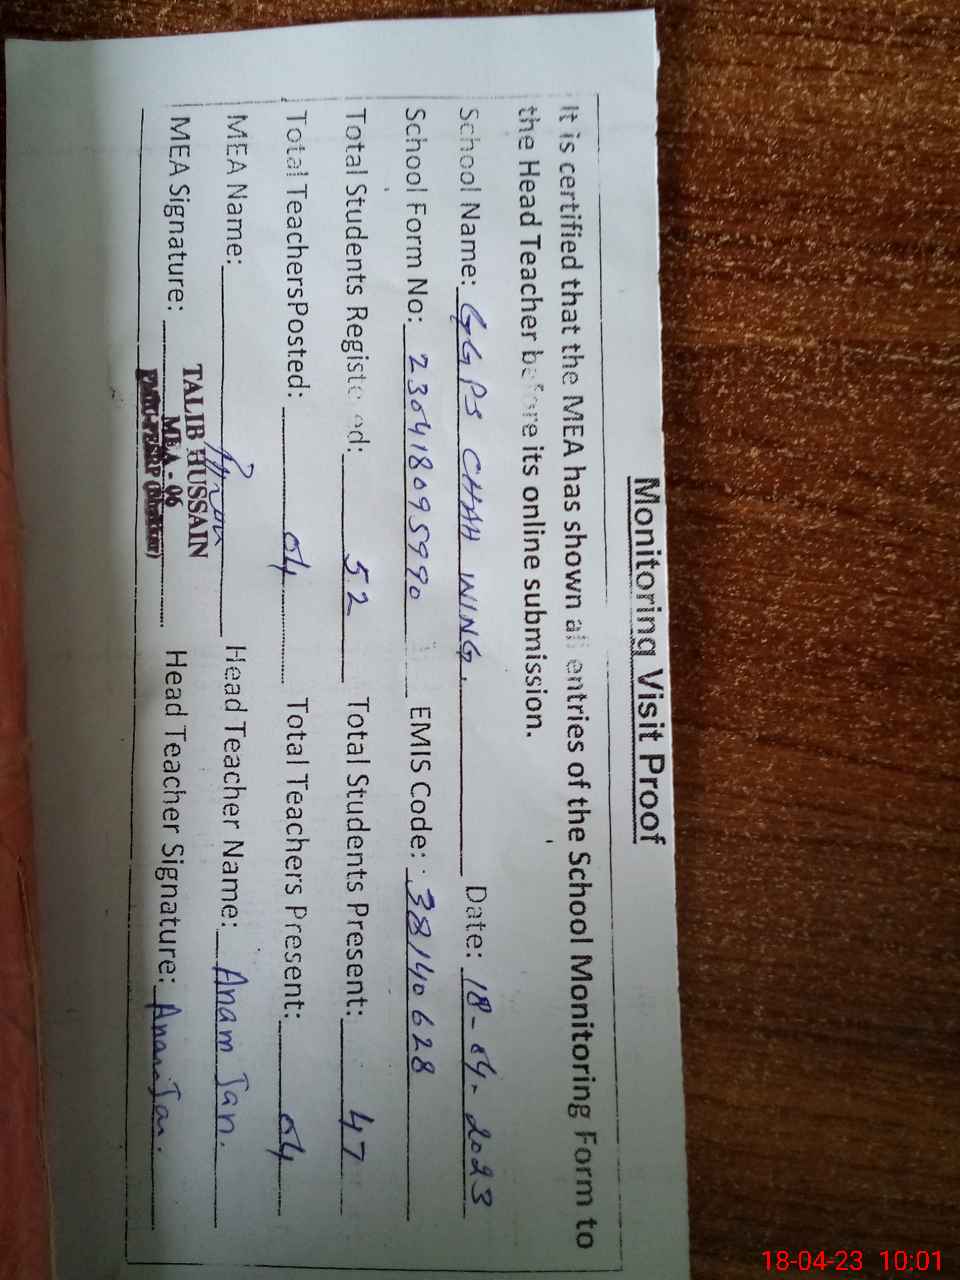 Monitoring Visit Proof
It is certified that the MEA has shown all entries of the School Monitoring Form to
the Head Teacher before its online submission.
School Name: GGPS CHAH WING. Date: 18-04-2023
School Form No: 230418095990 EMIS Code: 38140628
Total Students Registered: 52 Total Students Present: 47
Total TeachersPosted: 04 Total Teachers Present: 04
MEA Name: Head Teacher Name: Anam Jan.
TALIB HUSSAIN
MEA Signature: MEA - 06 Head Teacher Signature: Anam Jan.
18-04-23 10:01